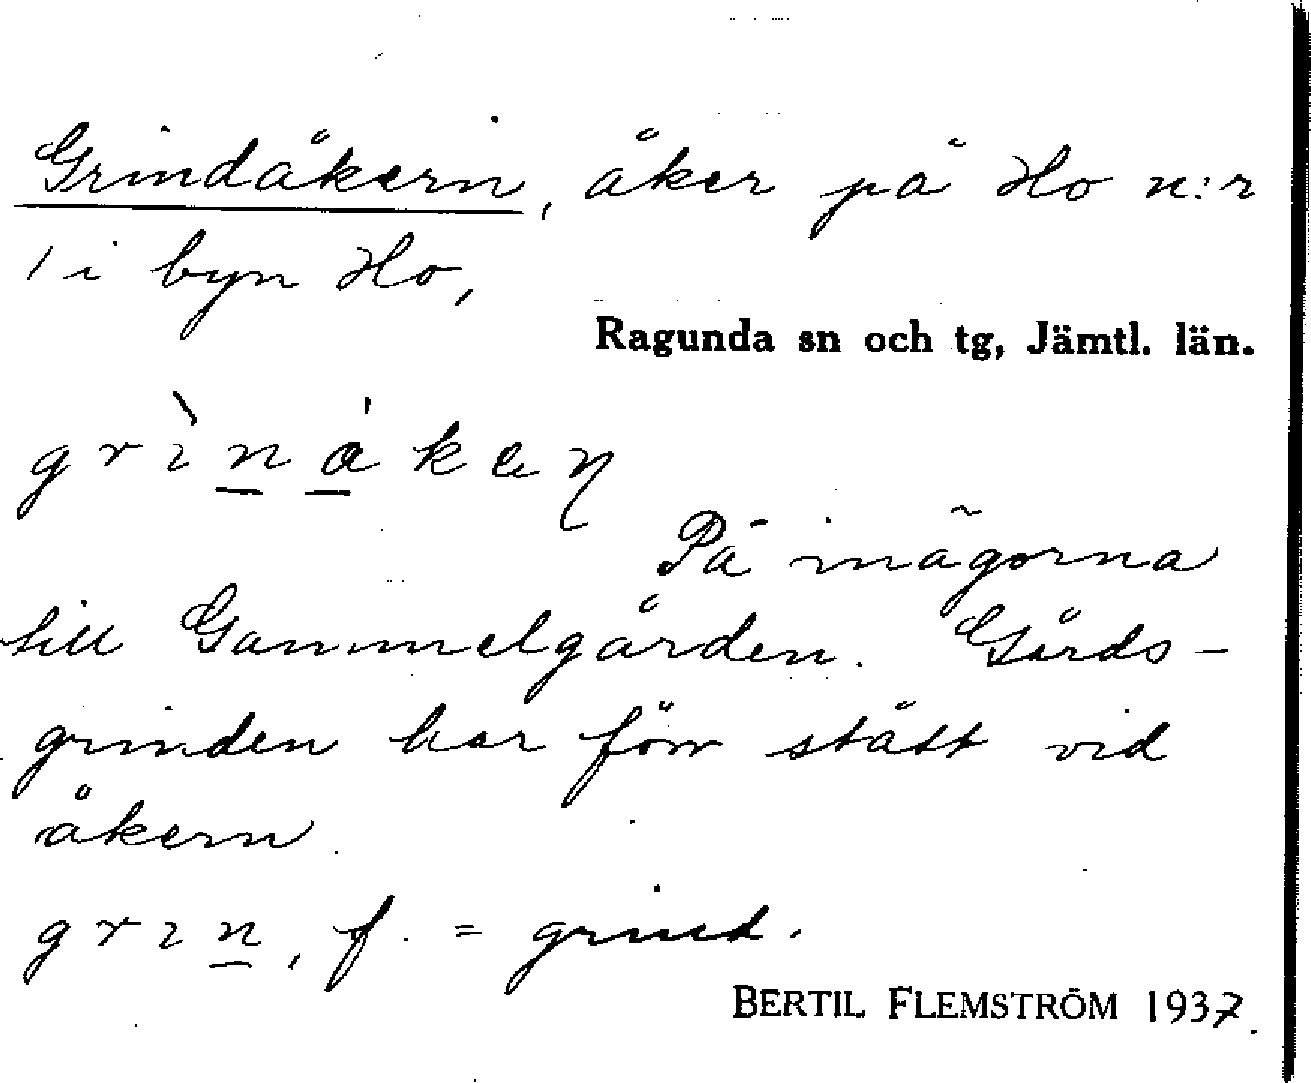 Grindåkern, åker på Ho n:r
1 i byn Ho,
Ragunda sn och tg, Jämtl. län.
På inägorna
till Gammelgården. Gårds-
grinden har förr stått vid
åkern.
grın, f. = grind.
BERTIL FLEMSTRÖM 1937.